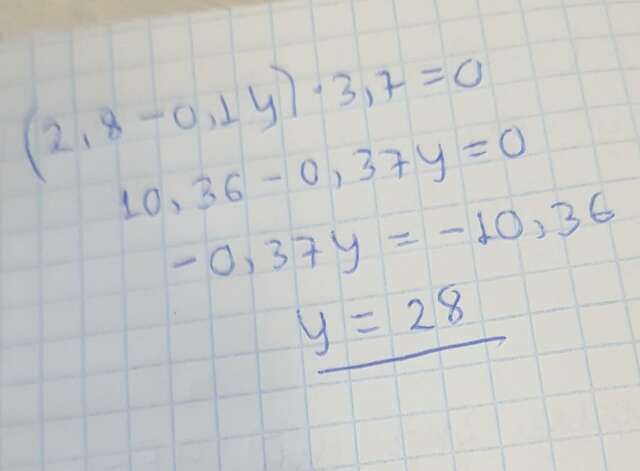 (2,8-0,1y)·3,7=0
10,36-0,37y=0
-0,37y=-10,36
y=28